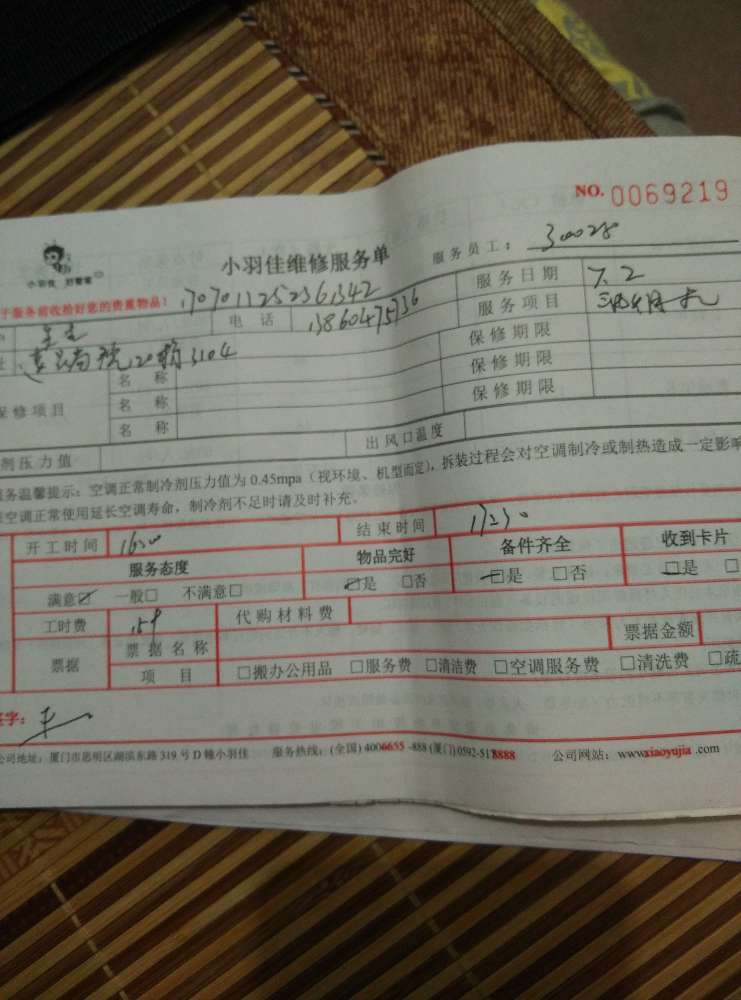 NO. 0069219
小羽佳 好管家
小羽佳维修服务单
服务员工： 300028
于服务前收给好您的贵重物品！ 1707011252361342
服务日期 7.2
电 话 13860475736
服务项目
20 3104
保修期限
保修项目 名 称
保修期限
名 称
保修期限
名 称
剂压力值 出风口温度
服务温馨提示：空调正常制冷剂压力值为 0.45mpa（视环境、机型而定），拆装过程会对空调制冷或制热造成一定影响
空调正常使用延长空调寿命，制冷剂不足时请及时补充。
开工时间 1600 结束时间 17230
服务态度 物品完好 备件齐全 收到卡片
满意☑ 一般□ 不满意□ ☑是 □否 ☑是 □否 ☑是 □
工时费 159 代购材料费
票据 票据名称 票据金额
项 目 □搬办公用品 □服务费 □清洁费 □空调服务费 □清洗费 □疏
签字：
公司地址：厦门市思明区湖滨东路 319 号 D 幢小羽佳 服务热线：(全国) 4006655 -888 (厦门) 0592-518888 公司网站：www.xiaoyujia .com